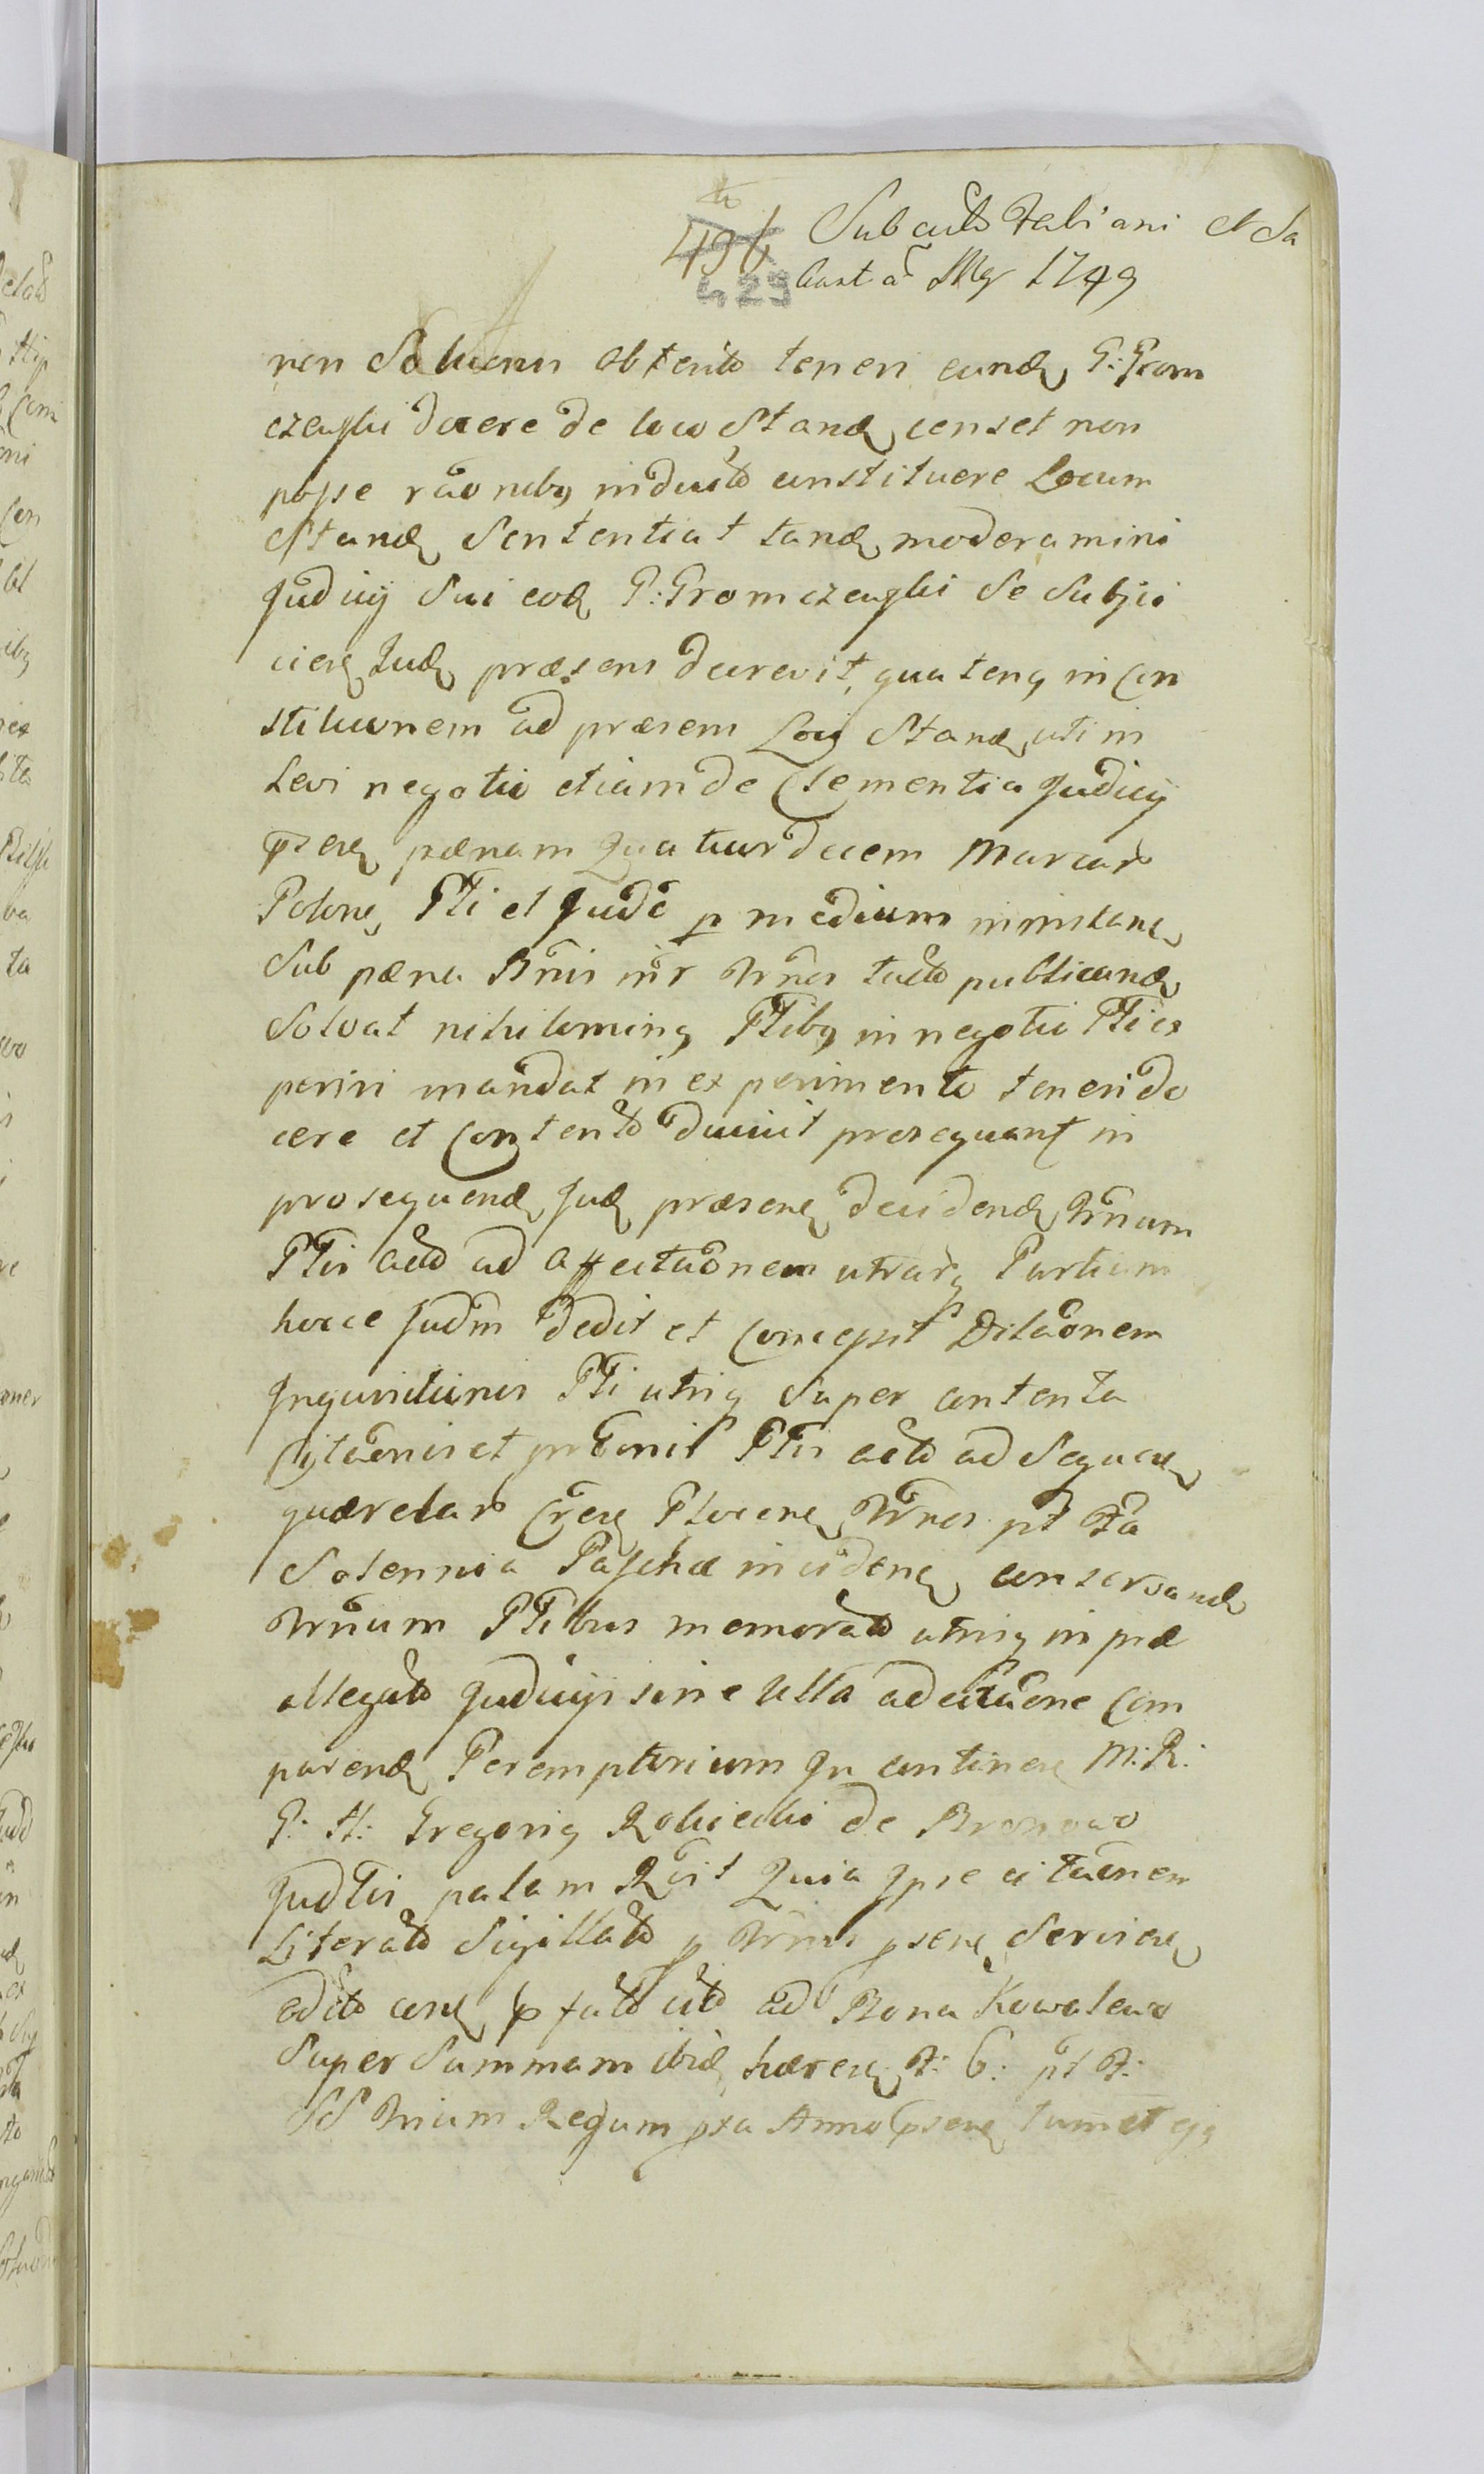 Sub actu Fabiani et Se
bast a Mgr 1749
429
non Soluciones obtento teneri eund P: Grom
czewski docere de loco Stand censet non
posse raonibg inducto constituere Locum
Stand Sententiat tand moderamini
Judicij Sui eod P: Gromczewski Se Subjici
ciens Jud præsens decrevit, quateng in Con
stituonem ad præsens Locij Stand uti in
Levi negotio etiam de Clementia Judicij
pænam Quatuordecim Marcar
Polon, Pti et Judo p medium in instanc
Sub pæna Bnis inr Wnos tacto publicand
Solvat nihiloming Ptibg in negotio Pti ex
periri mandat in experimento teneri do
cere et Contento ducuit prosequant in
prosequend Jud præsens decidend Wnum
Ptis acto ad affectaonem utrarq Partium
hocce Judm dedit et Concessit Dilaonem
Inquisitionis Pti utriq Super contenta
Citaonis et Ptis acto ad Sequen
quærelas Cren Plocens Wnos pt Fa
Solennia Paschæ incidens conservand
Wnum Ptibus memorato utriq in præ
allegato Judicijs sine Ulla adcitaone Com
parend Peremptorium In continen M: R:
P: H: Gregorig Rokicki de Bronowo
Judtis palam Roit Quia Ipse citaonem
Literato Sigillato p Wnos psens Servien
edito cons p fato cito ad Bona Kowalewo
Super Summam ibid hæren F: 6: pt F:
SS Trium Regum pxa Anno psens tum et ejg